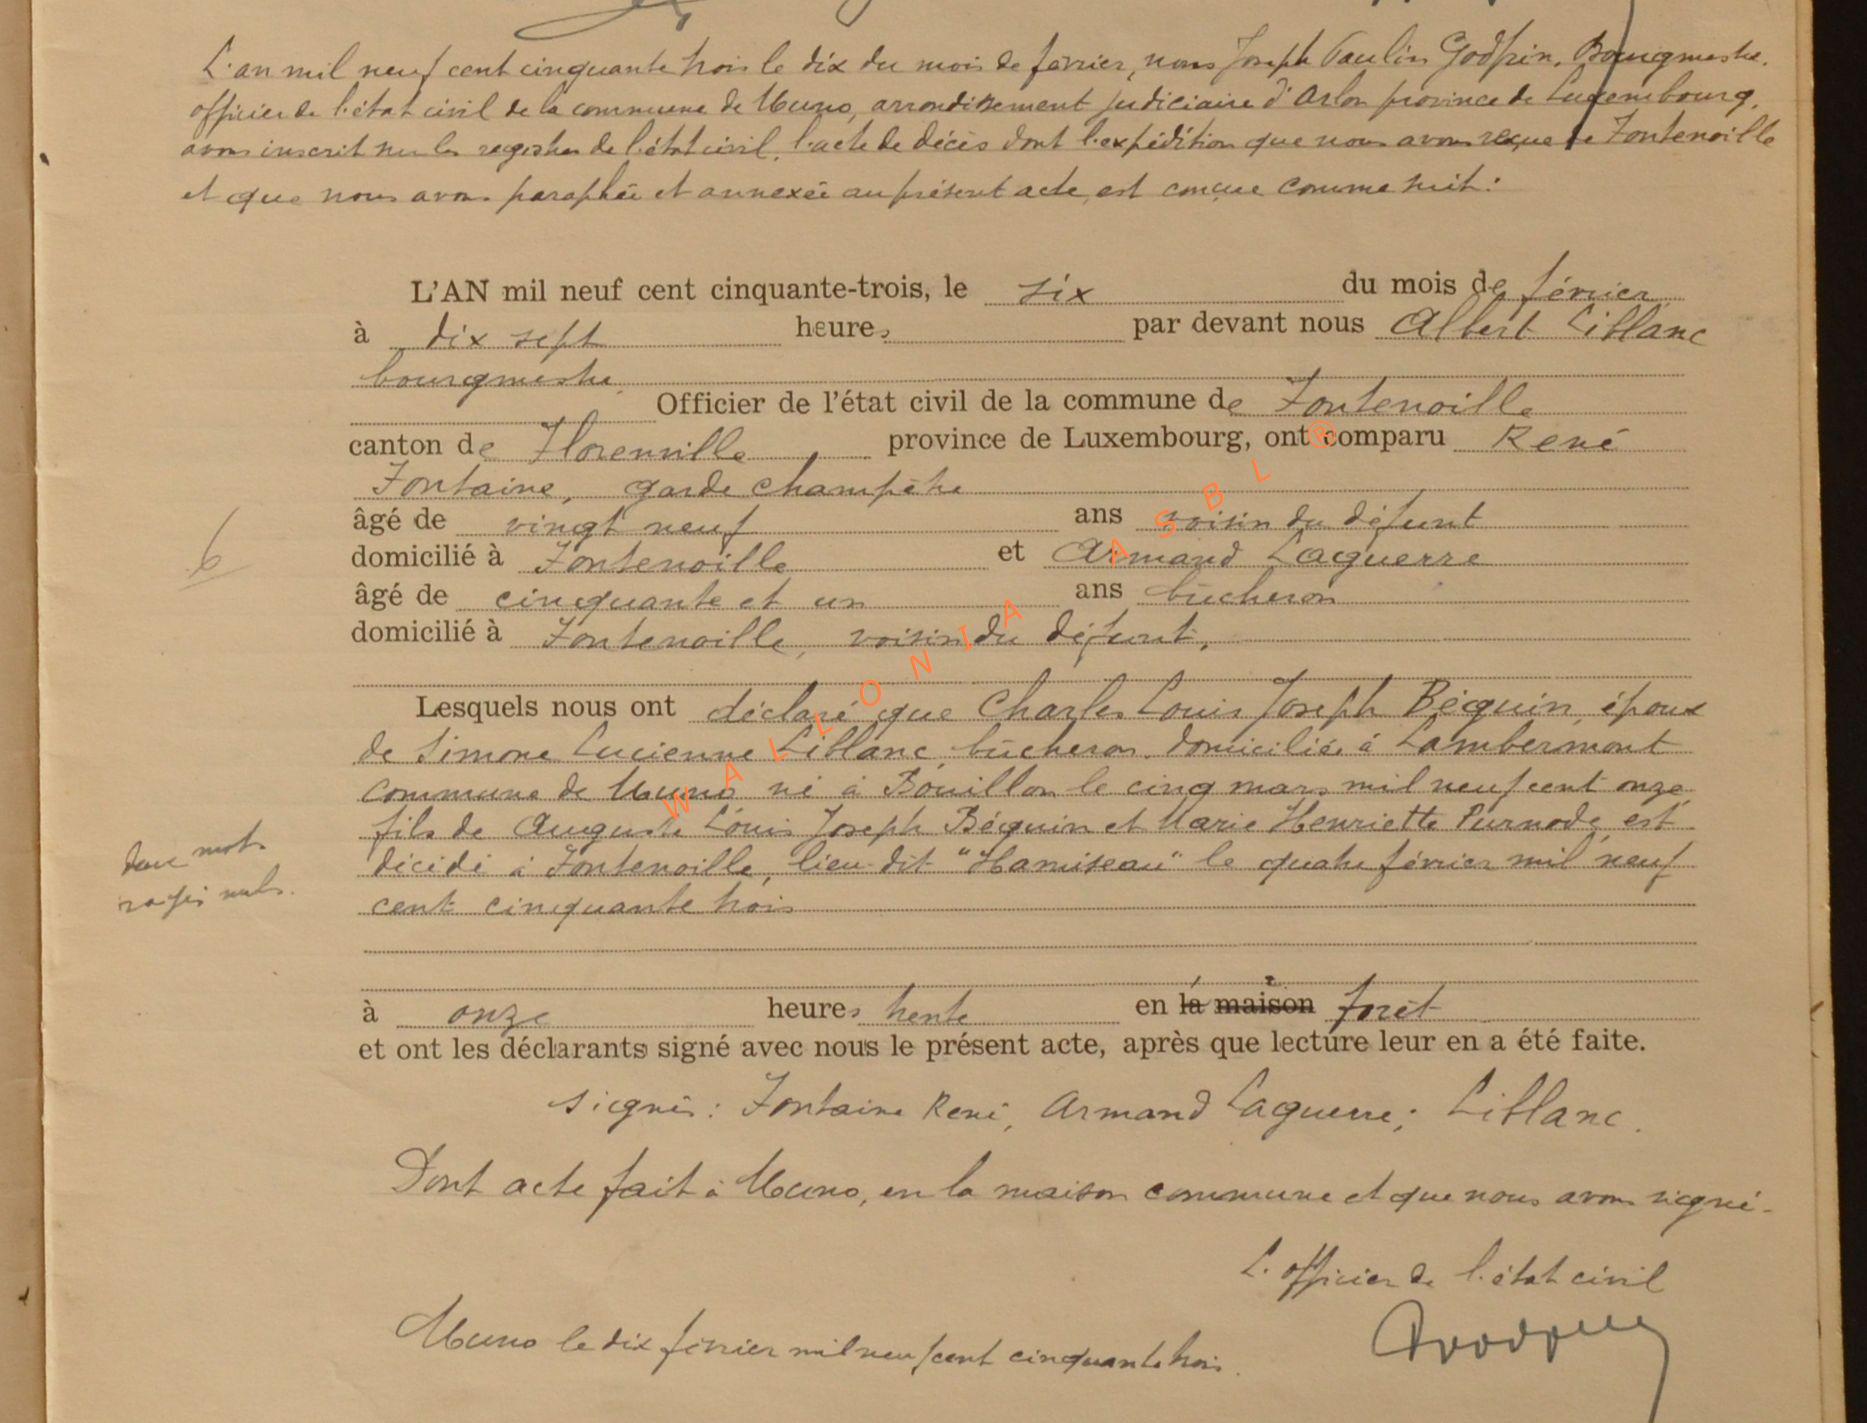 L'an mil neuf cent cinquante trois le dix du mois de février, nous Joseph Paulin Godfrin, Bourgmestre,
officier de l'état civil de la commune de Muno, arrondissement judiciaire d'Arlon province de Luxembourg,
avons inscrit sur les registres de l'état civil, l'acte de décès dont l'expédition que nous avons reçue de Fontenoille
et que nous avons paraphée et annexée au présent acte, est conçue comme suit :
L'AN mil neuf cent cinquante-trois, le six du mois de février
à dix sept heures par devant nous Albert Liblanc
bourgmestre
Officier de l'état civil de la commune de Fontenoille
canton de Florenville province de Luxembourg, ont comparu René
Fontaine, garde champêtre
âgé de vingt neuf ans voisin du défunt
domicilié à Fontenoille et Armand Laguerre
6
âgé de cinquante et un ans bûcheron
domicilié à Fontenoille, voisin du défunt,
Lesquels nous ont déclaré que Charles Louis Joseph Béquin, époux
de Simone Lucienne Liblanc, bûcheron, domicilié à Lambermont
commune de Muno né à Bouillon le cinq mars mil neuf cent onze,
fils de Auguste Louis Joseph Béquin et Marie Henriette Purnode, est
décédé à Fontenoille, lieu-dit "Hamiseau" le quatre février mil neuf
cent cinquante trois
deux mots
rayés nuls.
à onze heures trente en la maison forêt
et ont les déclarants signé avec nous le présent acte, après que lecture leur en a été faite.
signés : Fontaine René, Armand Laguerre ; Liblanc.
Dont acte fait à Muno, en la maison commune et que nous avons signé.
L'officier de l'état civil
Muno le dix février mil neuf cent cinquante trois.
WALLONIA ASBL ®